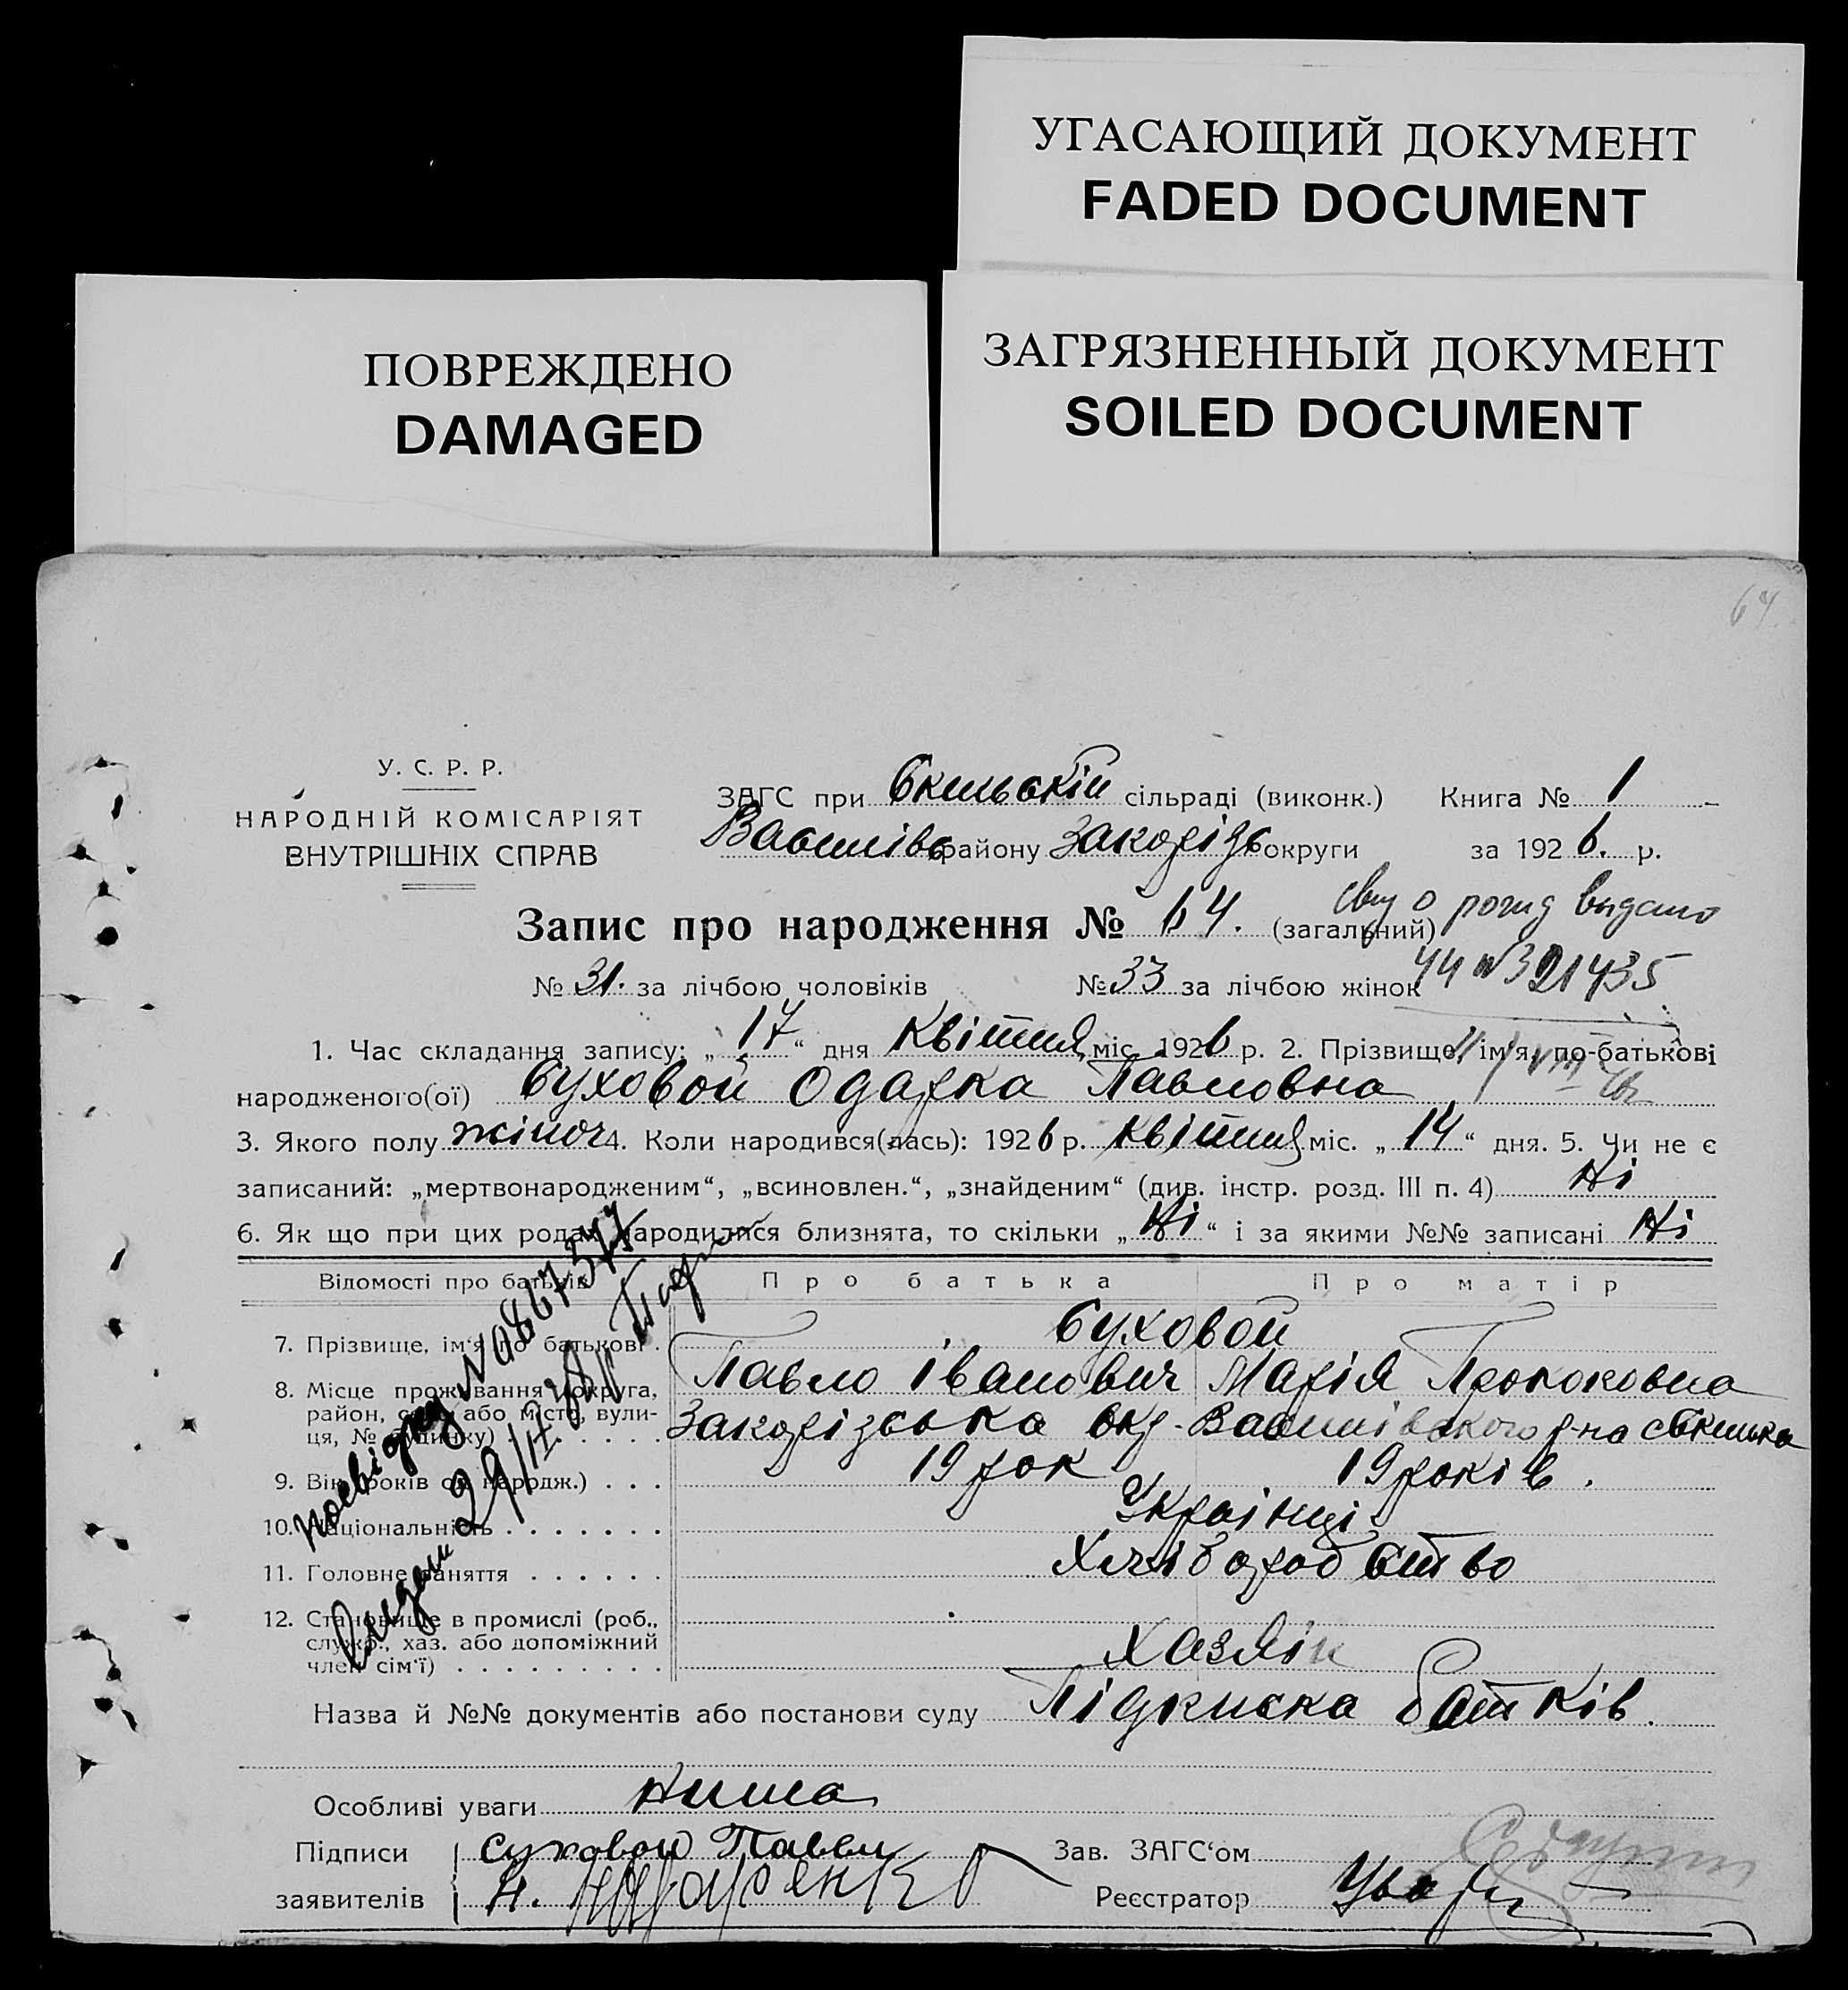 УГАСАЮЩИЙ ДОКУМЕНТ
FADED DOCUMENT
ПОВРЕЖДЕНО
DAMAGED
ЗАГРЯЗНЕННЫЙ ДОКУМЕНТ
SOILED DOCUMENT
64.
У. С. Р. Р.
НАРОДНІЙ КОМІСАРІЯТ
ВНУТРІШНІХ СПРАВ
ЗАГС при Скельскій сільраді (виконк.) Книга № 1
Василівс району Запорізс округи за 1926. р.
Запис про народження № 64. (загальний)
выдано
№ 31. за лічбою чоловіків № 33 за лічбою жінок
321435
1. Час складання запису: „ 17 “ дня Квітня міс. 1926 р. 2. Прізвище, ім'я, по-батькові
народженого(ої) Суховой Одарка Павловна
3. Якого полу жіноч 4. Коли народився(лась): 1926 р. Квітня міс. „ 14 “ дня. 5. Чи не є
записаний: „мертвонародженим“, „всиновлен.“, „знайденим“ (див. інстр. розд. III п. 4) Ні
6. Як що при цих родах народилися близнята, то скільки „ Ні “ і за якими №№ записані Ні
Відомості про батьків Про батька Про матір
7. Прізвище, ім'я по батькові . Суховой
Павло Іванович Марія Прококовна
8. Місце проживання (округа,
район, село або місто, вули-
ця, № будинку) Запорізська окр. Василівского р-на с Скелька
9. Вік (років од народж.) . . . 19 рок 19 років.
10. Національність . . . . . . . Українці
11. Головне заняття . . . . . . Хліборобство
12. Становище в промислі (роб.,
служб., хаз. або допоміжний
член сім'ї) . . . . . . . . . Хазяін
Назва й №№ документів або постанови суду Підписка батків.
Особливі уваги Нима
Підписи Суховой Павел
заявителів Н.
Зав. ЗАГС'ом
Реєстратор